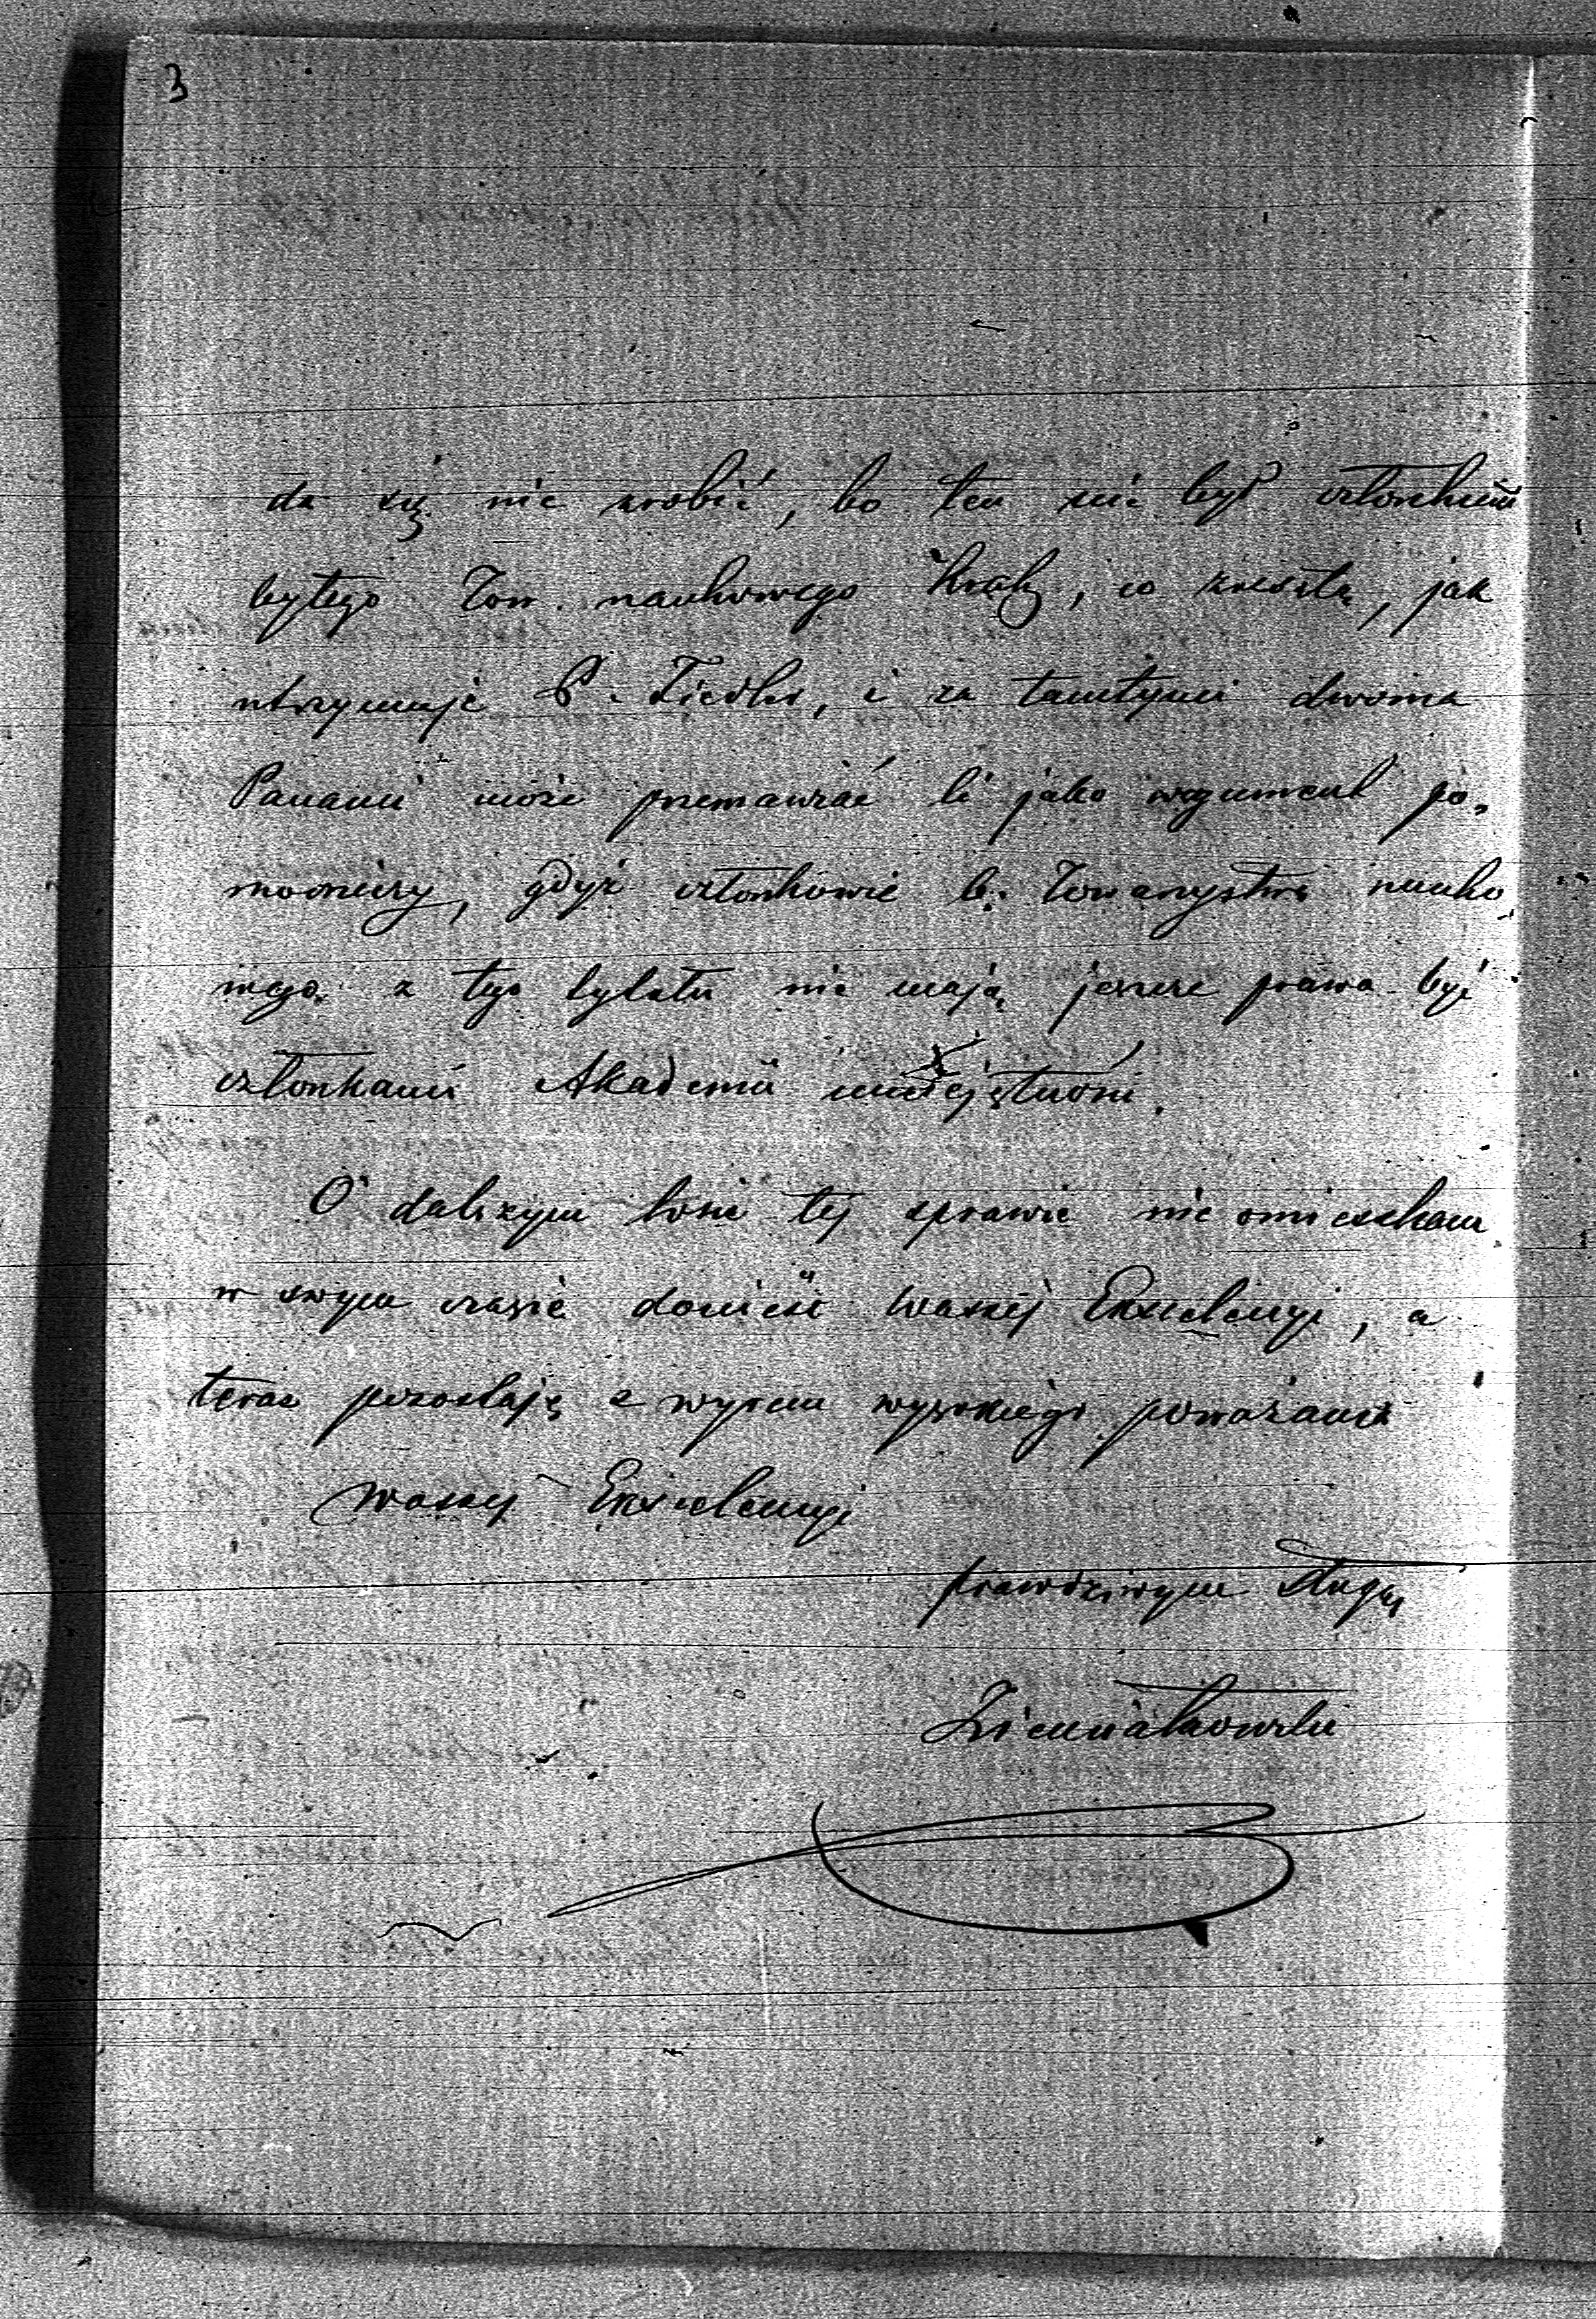 3
da się nic zrobić, bo ten nie był członkiem
byłego Tow. naukowego Krak, co zresztą, jak
utrzymuje P. Fiedler, i za tamtymi dwoma
Panami może przemawiać li jako argument po-
mocniczy, gdyż członkowie b. Towarzystwa nauko
wego z tego tytułu nie mają jeszcze prawa być
członkami Akademii umiejętności.
O dalszym losie tej sprawie nie omieszkam
w swym czasie donieść Waszej Ekscelencyi, a
teraz pozostaję z wysokiego poważania
Waszej Ekscelencyi
prawdziwym sługą
Ziemiałkowski